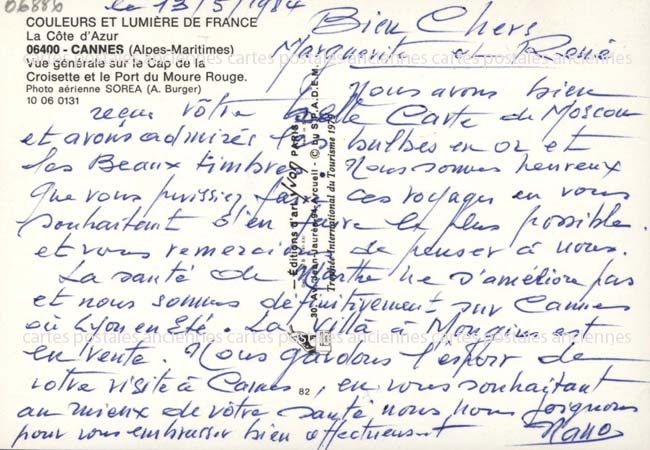 06886
le 13/5/1984
COULEURS ET LUMIÈRE DE FRANCE
La Côte d'Azur
06400 - CANNES (Alpes-Maritimes)
Vue générale sur le Cap de la
Croisette et le Port du Moure Rouge.
Photo aérienne SOREA (A. Burger)
10 06 0131
Bien Chers
Marguerite et René
Nous avons bien
reçu vôtre belle Carte de Moscou
et avons admirés les bulbes en or et
les Beaux timbres. Nous sommes heureux
que vous puissiez faire ces voyages en vous
souhaitant d'en faire le plus possible.
et vous remercions de penser à nous.
La santé de Marthe ne s'améliore pas
et nous sommes définitivement sur Cannes
où Lyon en Eté. La Villa à Mougins est
en vente. Nous gardons l'espoir de
votre visite à Cannes, en vous souhaitant
au mieux de vôtre santé nous nous joignons
pour vous embrasser bien affectueusement
Éditions d'art Yvon PARIS
30, Av. Jean-Jaurès, 94-Arcueil - © by S.P.A.D.E.M.
Trophée International du Tourisme
82
cartes postales anciennes